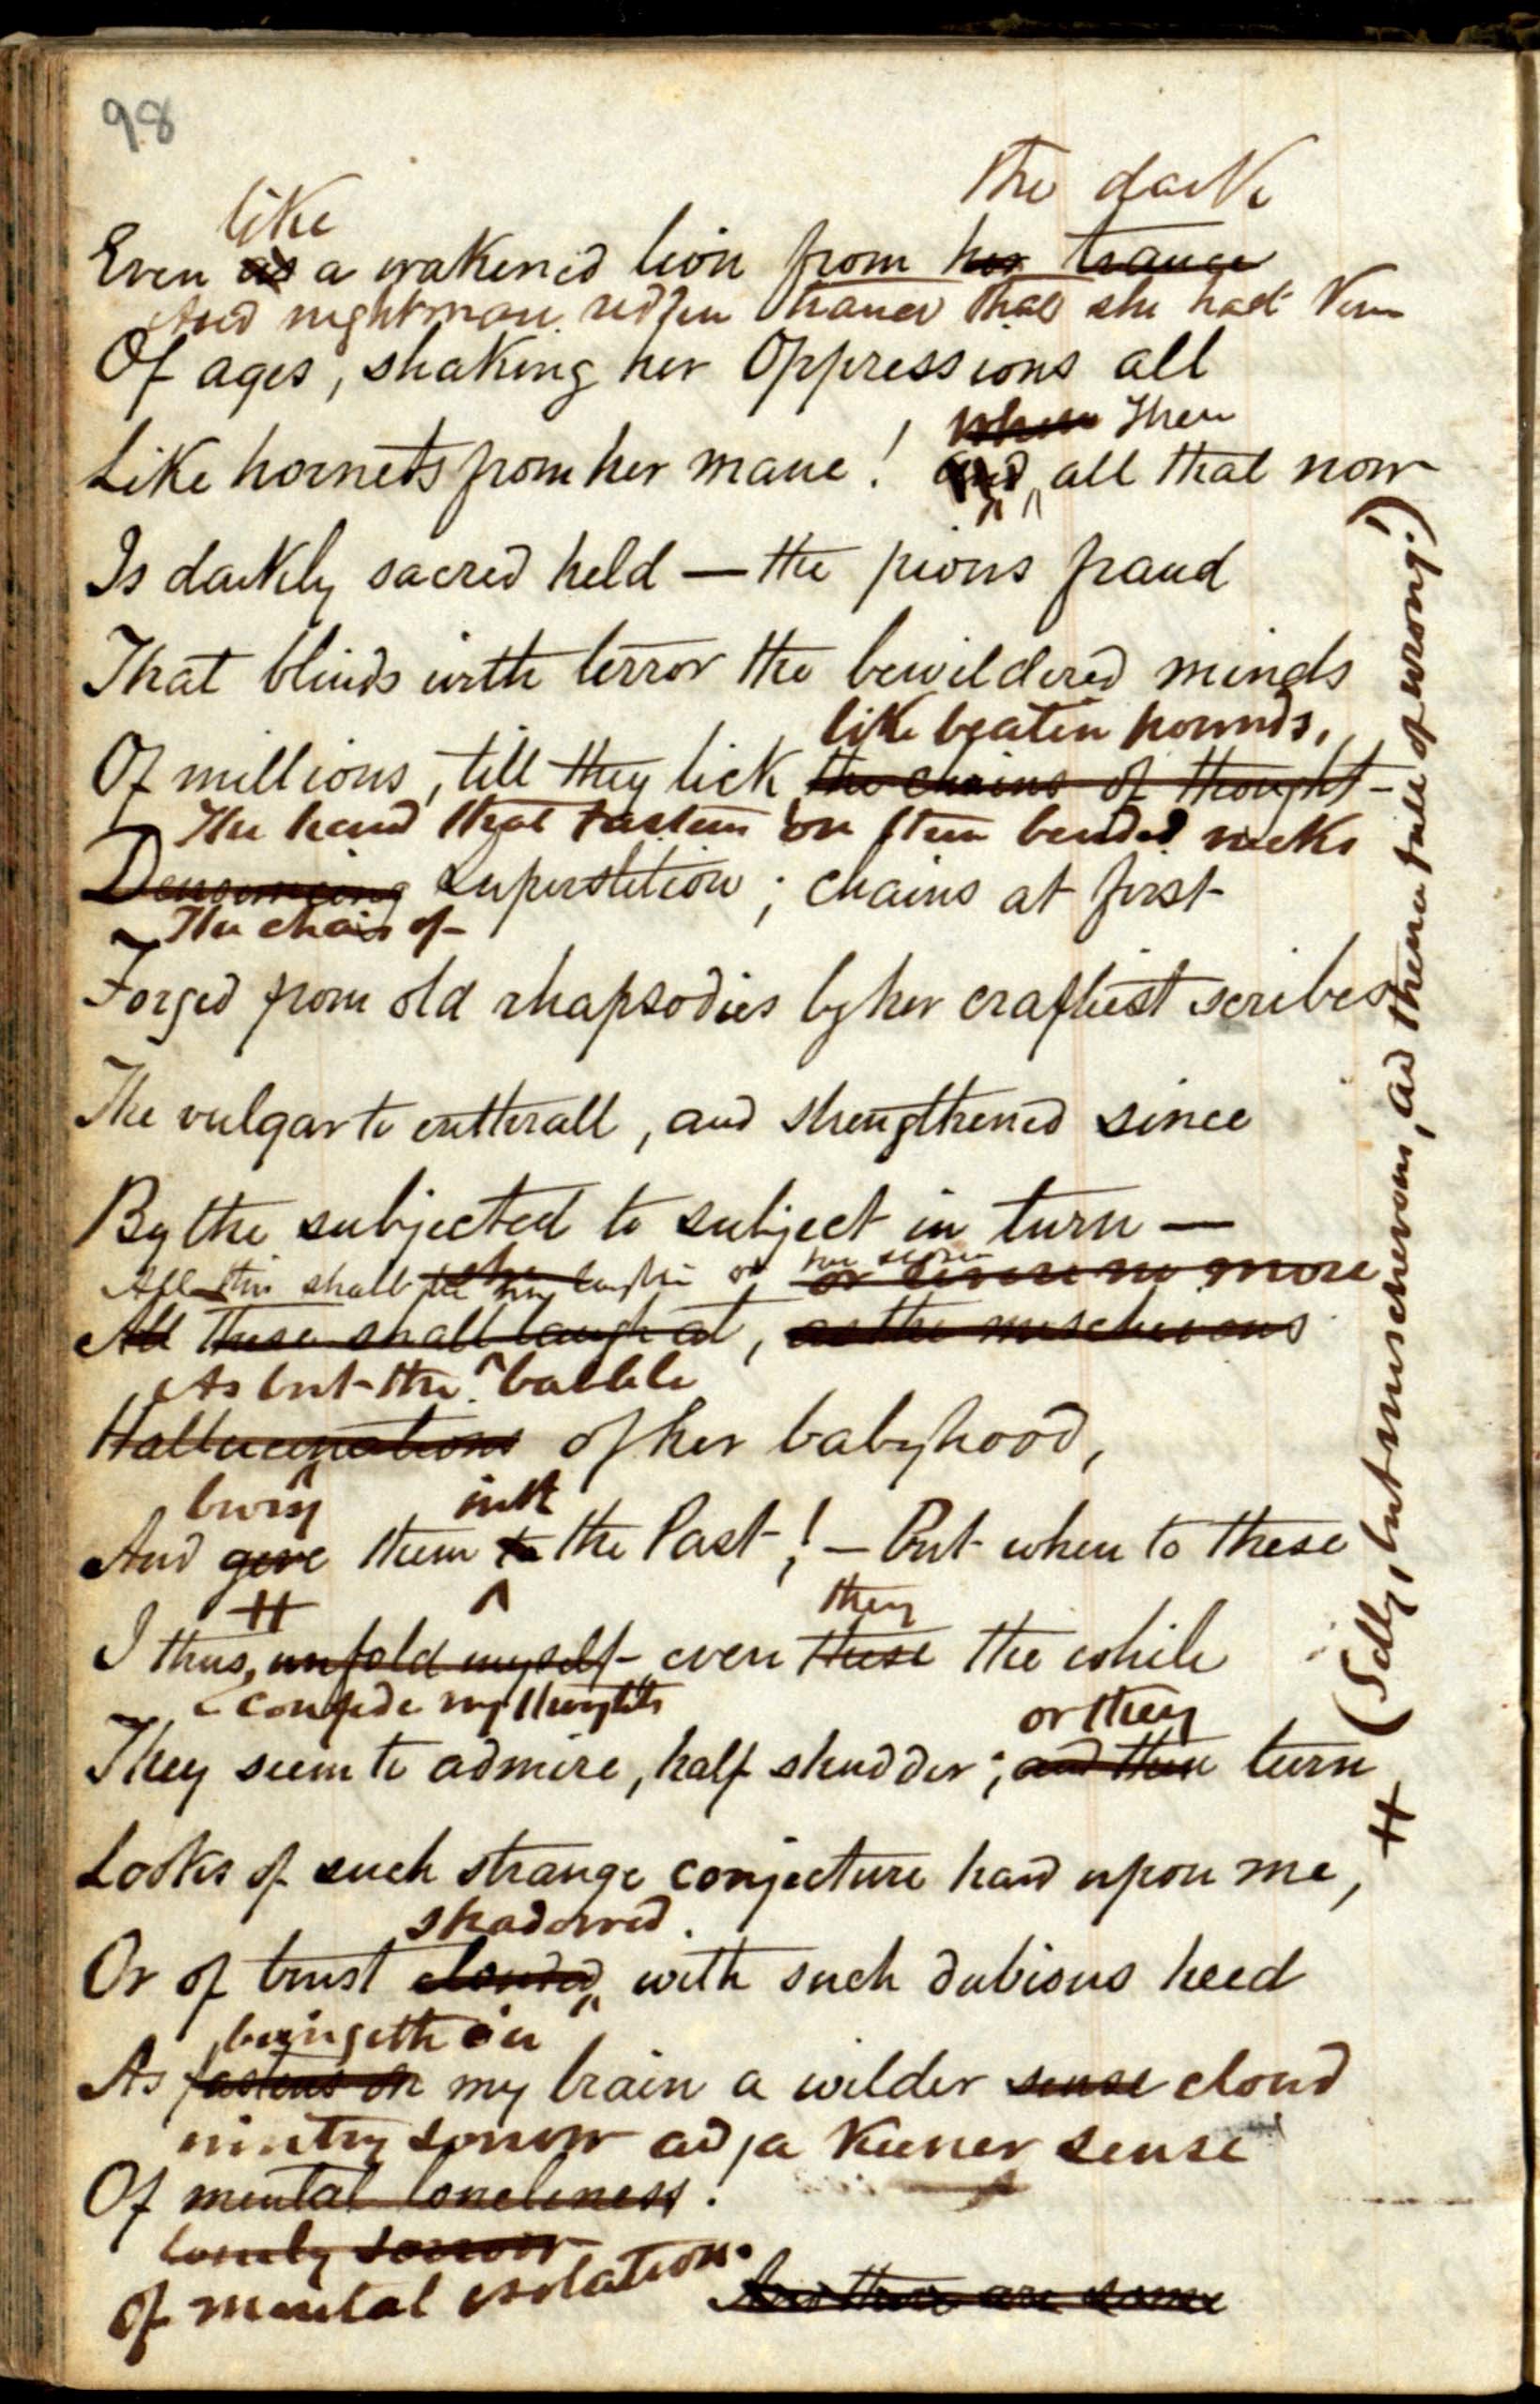 98
the dark
like
Even as a wakened lion from her trance
And nightmare ridden trance that she had
Of ages, shaking her Oppressions all
when Then
Like hornets from her mane! And all that now
Is darkly sacred held — the pious fraud
That blinds with terror the bewildered minds
like beaten hounds,
Of millions, till they lick the chains of thought —
The hand that fastens on their bended necks
Superstition; chains at first
The chain of
Forged from old rhapsodies by her craftiest scribes
The vulgar to enthrall, and strengthened since
By the subjected to subject in turn —
All this shall she or revere no more
All these shall laugh at, as the mischievous
As but the babble
Hallucinations of her babyhood,
bury into
And give them to the Past! — But when to these
H they
I thus, unfold myself even these the while
confide my thoughts
or they
They seem to admire, half shudder; and then turn
Looks of such strange conjecture hard upon me,
shadowed.
Or of trust clouded, with such dubious heed
bringeth o'er
As fastens on my brain a wilder sense cloud
wintry sorrow and a keener sense
Of mental loneliness.
lonely sorrow
Of mental isolation.
And there are some
H (Silly, but mischievous, and thence full of wrong!)